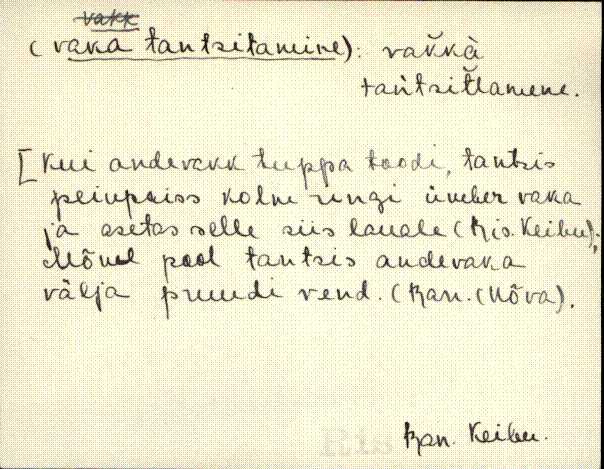 vakk
(vaka tantsitamine): vakkà
tantsitlamene.
[Kui andevakk tuppa toodi, tantsis
peiupoiss kolm ringi ümber vaka
ja asetas selle siis lauale (Ris. Keibu);
Mõnel pool tantsis andevaka
välja pruudi vend. (Ran. (Nõva).
Ran. Keibu.